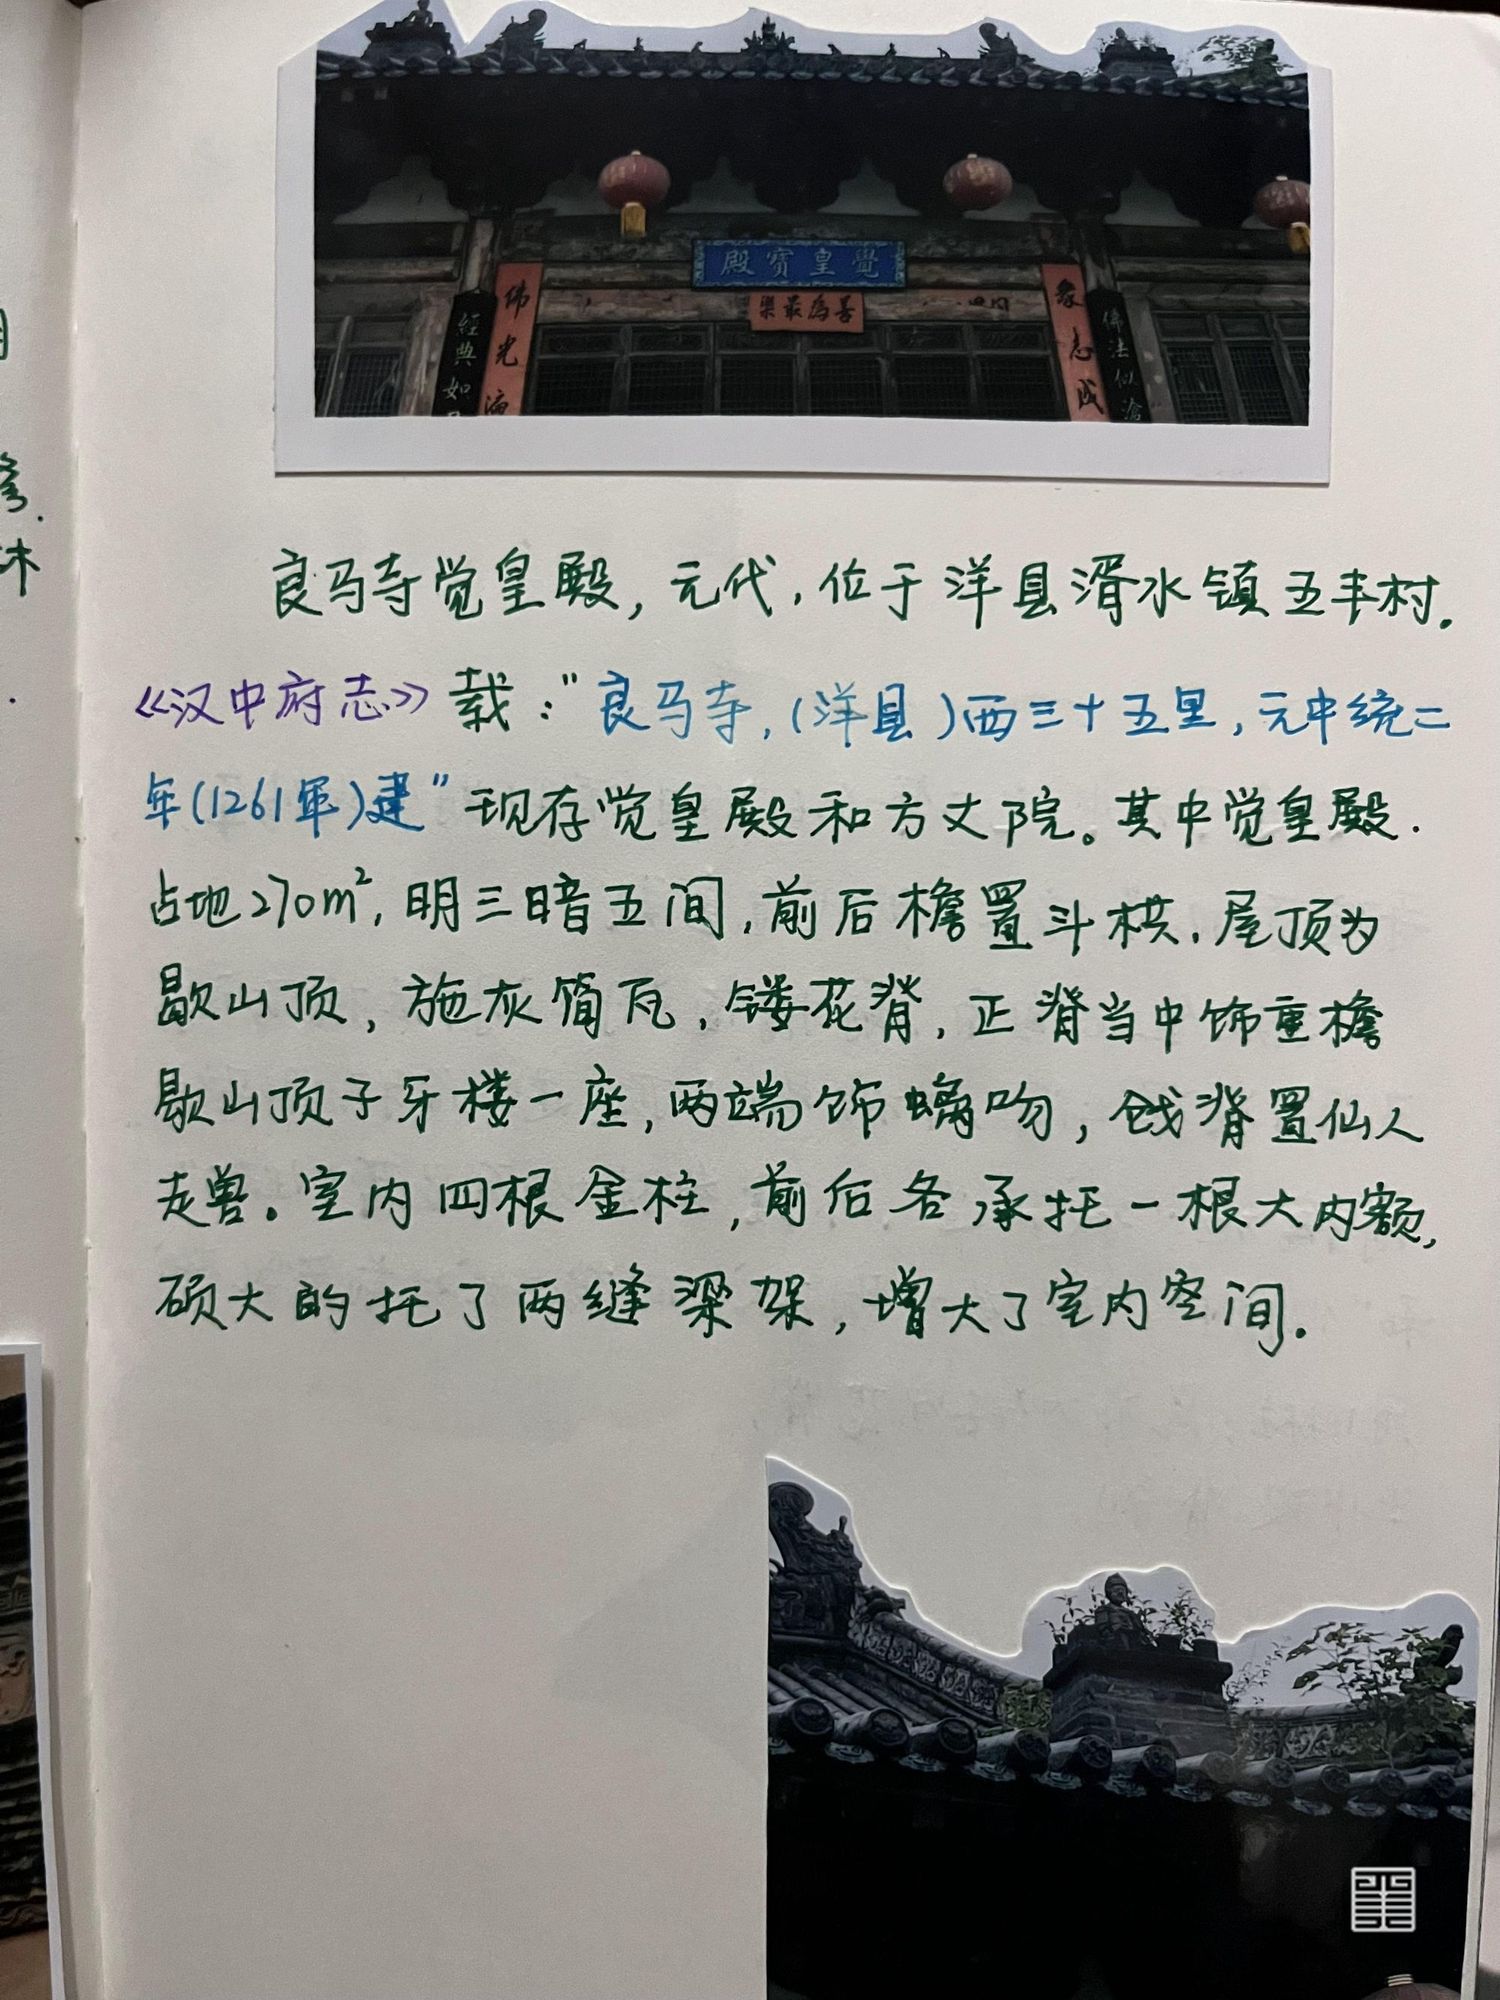 覺皇寶殿
善為最樂
佛光
眾志成
經典如
佛法似滄
良马寺觉皇殿，元代，位于洋县湑水镇五丰村。
《汉中府志》载："良马寺，(洋县)西三十五里，元中统二
年(1261年)建"现存觉皇殿和方丈院。其中觉皇殿.
占地270m²，明三暗五间，前后檐置斗栱，屋顶为
歇山顶，施灰筒瓦，镂花脊，正脊当中饰重檐
歇山顶子牙楼一座，两端饰螭吻，戗脊置仙人
走兽。室内四根金柱，前后各承托一根大内额，
硕大的托了两缝梁架，增大了室内空间。